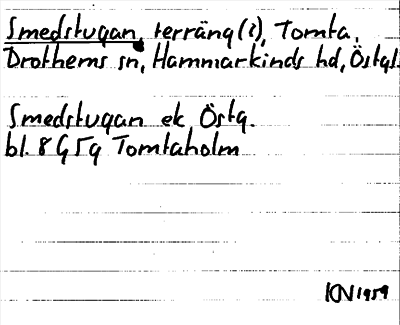 Smedstugan, terräng(?), Tomta,
Drothems sn, Hammarkinds hd, Östgl.
Smedstugan ek Östg.
bl. 8G5g Tomtaholm
KN 1959